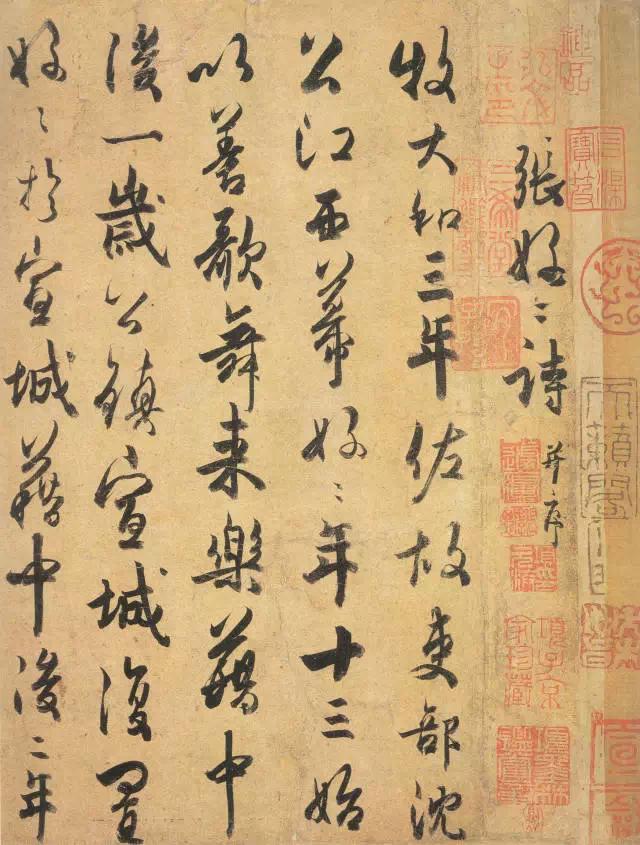 張好〻詩
并序
牧大和三年佐故吏部沈
公江西幕好〻年十三始
以善歌舞来樂籍中
後一歲公鎮宣城復置
好〻於宣城籍中後二年
天籟閣
項子京家珍藏